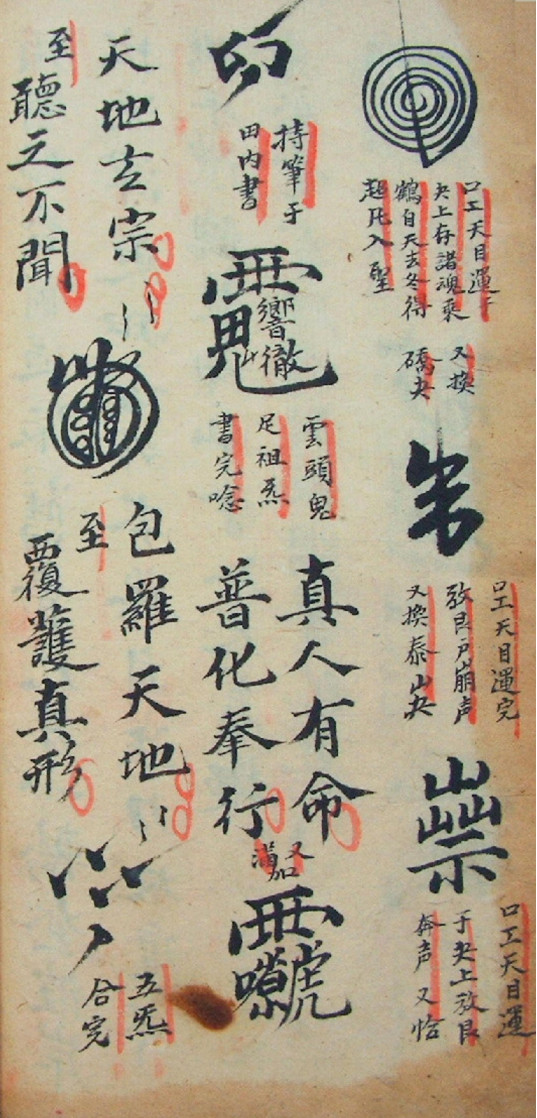 口工天目運于
夬上存諸魂乘
鶴自天去冬得
超凡入聖
又換
夬
口工天目運完
放艮戶崩声
又換泰山夬
口工天目運
于夬上放艮
奔声又恰
卯
持筆于
田内書
響徹
雲頭鬼
足祖炁
書完唸
真人有命
普化奉行
又加
滿
天地玄宗
至
聽之不聞
包羅天地
至
覆護真形
五炁
合完